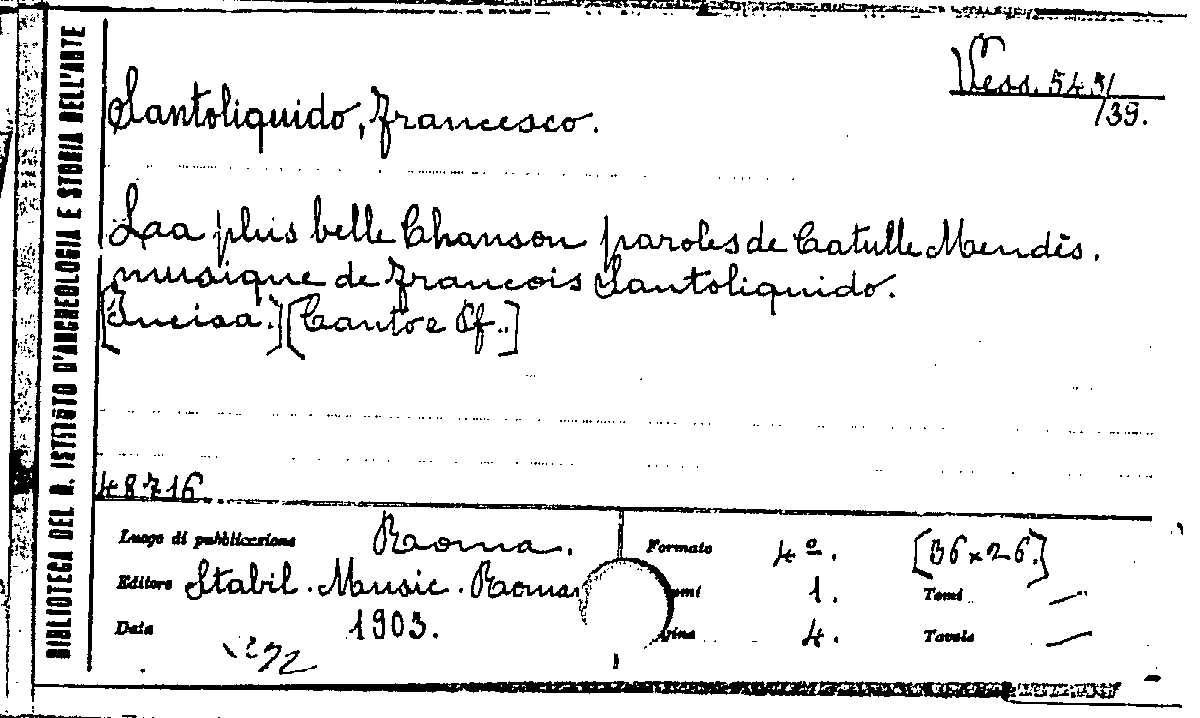 BIBLIOTECA DEL R. ISTITUTO D'ARCHEOLOGIA E STORIA DELL'ARTE
Vess. 543/
/39.
Santoliquido, Francesco.
Laa plus belle Chanson paroles de Catulle Mendès.
musique de Francois Santoliquido.
[Incisa.] [Canto e Pf..]
48716
Luogo di pubblicazione Roma. Formato 4º. [36 x 26.]
Editore Stabil. Music. Roman 1. Tomi —
Data 1903. 4. Tavole —